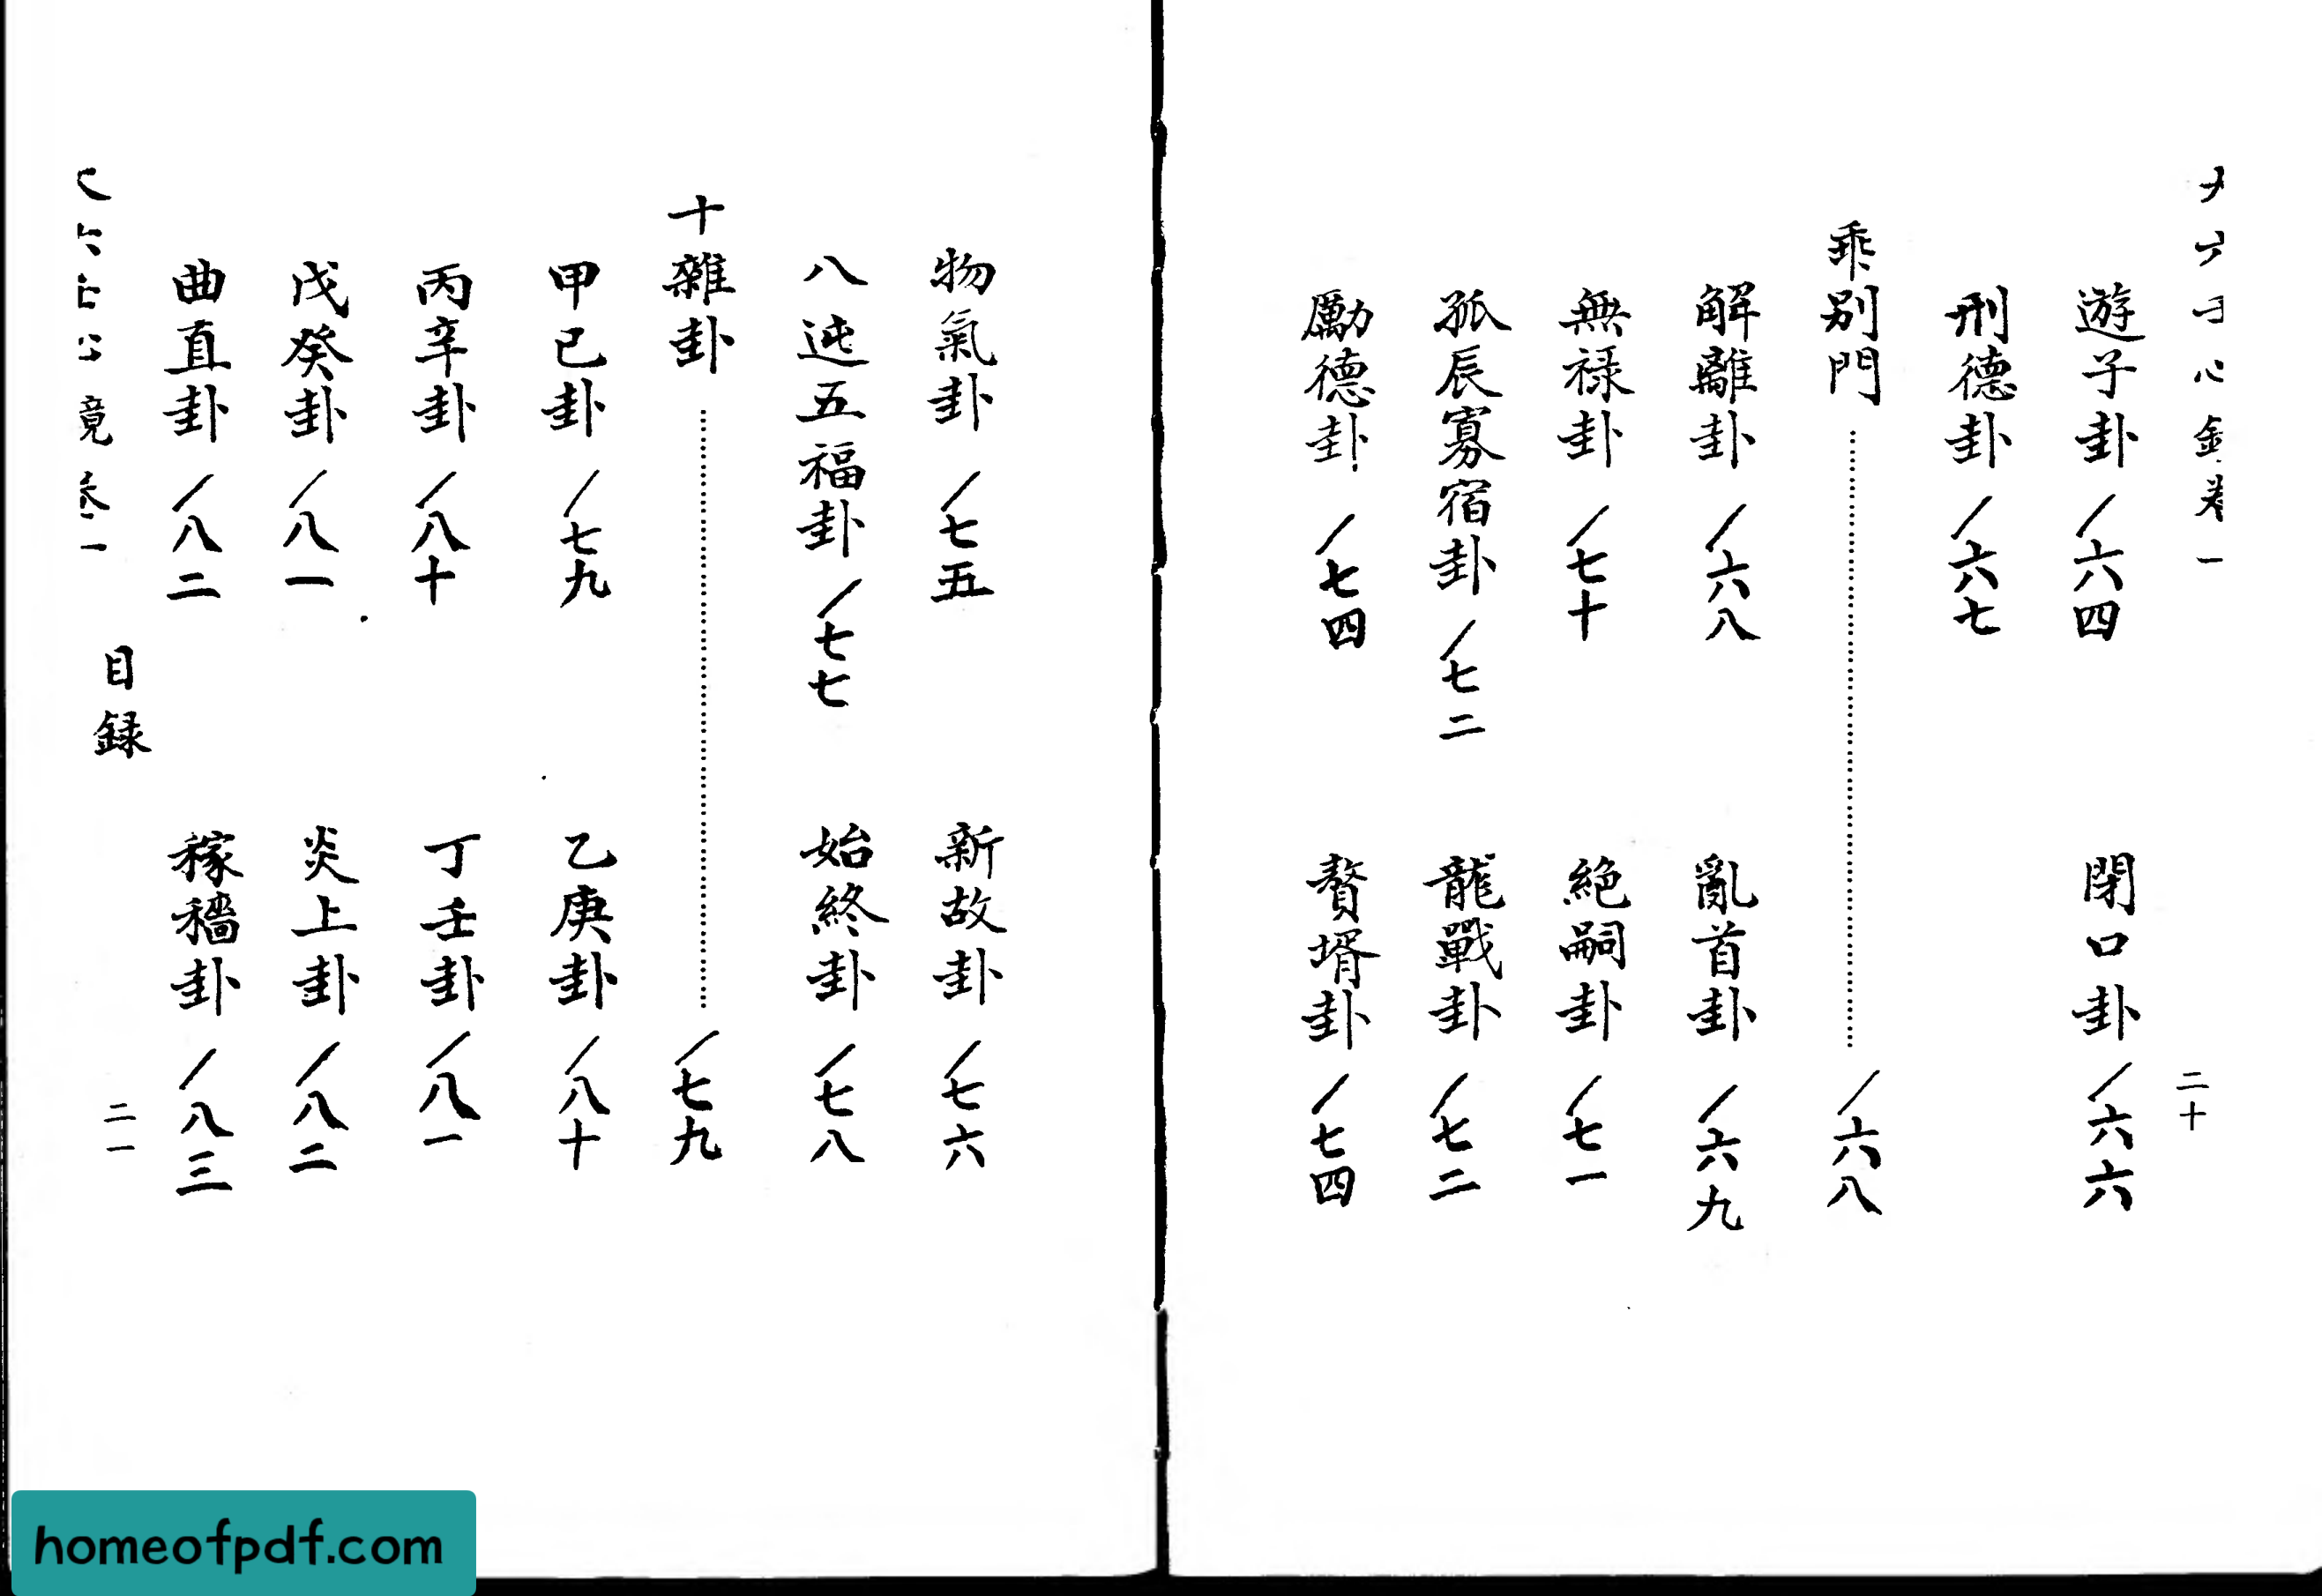 卷一
二十
遊子卦 /六四 閉口卦 /六六
刑德卦 /六七
乖別門 …… /六八
解離卦 /六八 亂首卦 /六九
無禄卦 /七十 絕嗣卦 /七一
孤辰寡宿卦 /七二 龍戰卦 /七二
勵德卦 /七四 贅壻卦 /七四
物氣卦 /七五 新故卦 /七六
八迍五福卦 /七七 始終卦 /七八
十雜卦 …… /七九
甲已卦 /七九 乙庚卦 /八十
丙辛卦 /八十 丁壬卦 /八一
戊癸卦 /八一 炎上卦 /八二
曲直卦 /八二 稼穡卦 /八三
目録
二一
homeofpdf.com